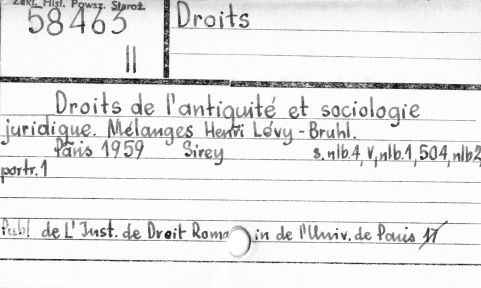 Zakł. Hist. Powsz. Staroż.
58463
II
Droits
Droits de l'antiquité et sociologie
juridique. Mélanges Henri Lévy-Bruhl.
Paris 1959 Sirey s. nlb. 4, V, nlb. 1, 504, nlb 2,
portr. 1
Publ de L'Inst. de Droit Romain de l'Univ. de Paris 17